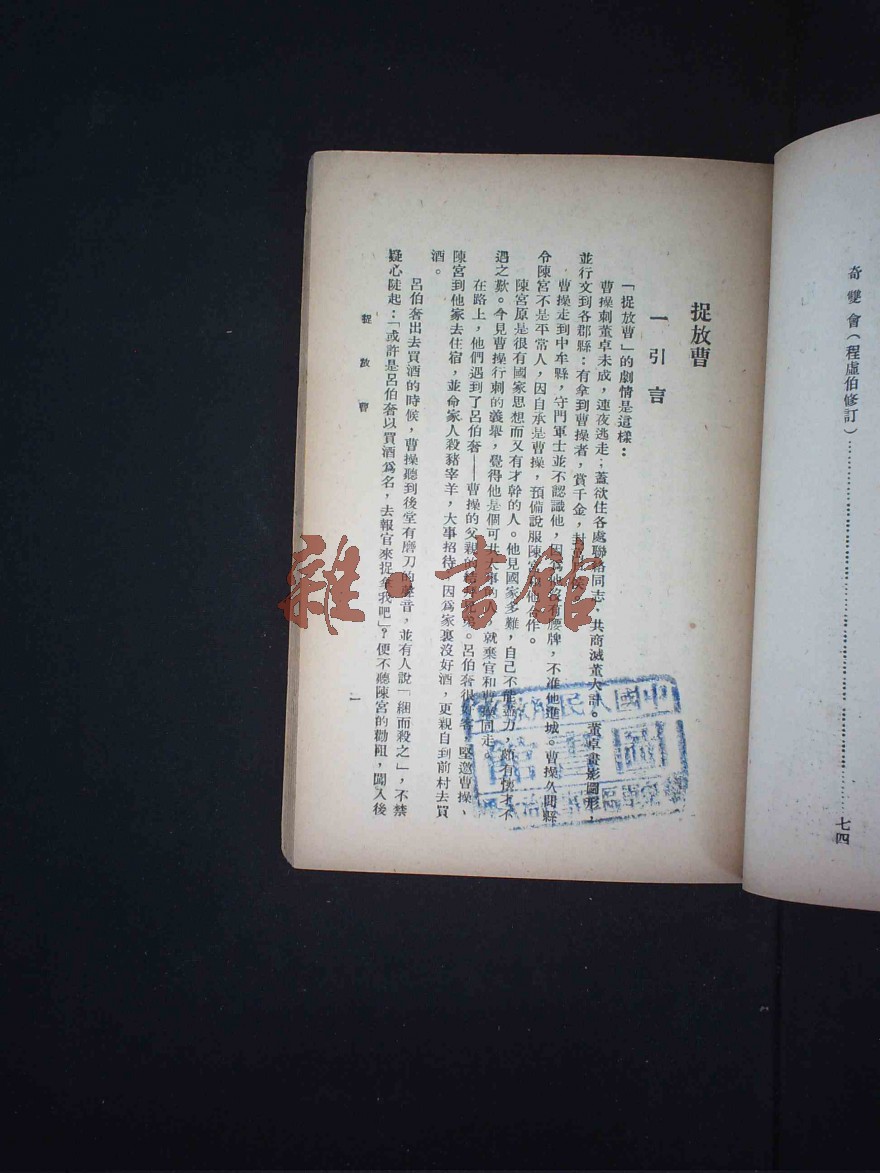 奇雙會（程虛伯修訂）⋯⋯⋯⋯⋯⋯⋯⋯七四
捉放曹
一 引言
「捉放曹」的劇情是這樣：
曹操刺董卓未成，連夜逃走；蓋欲往各處聯絡同志，共商滅董大計。董卓畫影圖形，
並行文到各郡縣：有拿到曹操者，賞千金，封
曹操走到中牟縣，守門軍士並不認識他，因爲他沒有腰牌，不准他進城。曹操久聞縣
令陳宮不是平常人，因自承是曹操，預備說服陳宮與他合作。
陳宮原是很有國家思想而又有才幹的人。他見國家多難，自己不能盡力，頗有懷才不
遇之歎。今見曹操行刺的義舉，覺得他是個可共大事的人，就棄官和曹操同走。
在路上，他們遇到了呂伯奢——曹操的父親的結拜弟兄。呂伯奢很好客，堅邀曹操、
陳宮到他家去住宿，並命家人殺豬宰羊，大事招待。因爲家裏沒好酒，更親自到前村去買
酒。
呂伯奢出去買酒的時候，曹操聽到後堂有磨刀的聲音，並有人說「綑而殺之」，不禁
疑心陡起：「或許是呂伯奢以買酒爲名，去報官來捉拿我吧」？便不聽陳宮的勸阻，闖入後
捉放曹
一
雜·書館
中國人民解放軍
圖書館